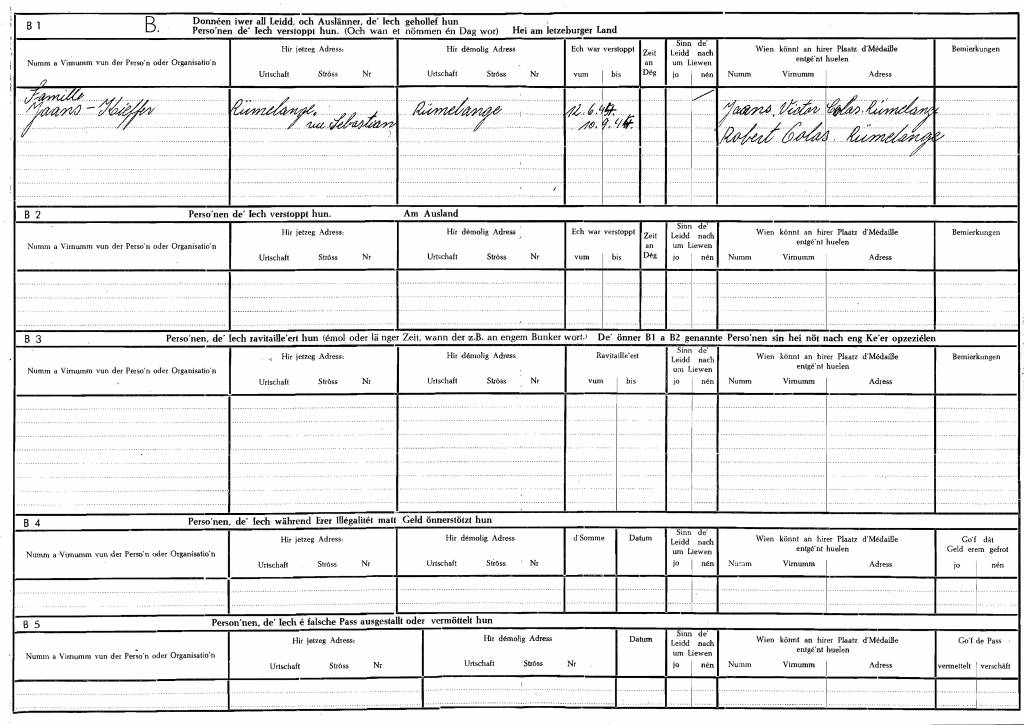 B 1 B. Donnéen iwer all Leidd, och Auslänner, de' Iech gehollef hun
Perso'nen de' Iech verstoppt hun. (Och wan et nömmen én Dag wor) Hei am letzeburger Land
Numm a Virnumm vun der Perso'n oder Organisatio'n
Hir jetzeg Adress:
Urtschaft Ströss Nr
Hir démolig Adress
Urtschaft Ströss Nr
Ech war verstoppt
vum bis
Zeit
an
Dég
Sinn de'
Leidd nach
um Liewen
jo nén
Wien könnt an hirer Plaatz d'Médaille
entgé'nt huelen
Numm Virnumm Adress
Bemierkungen
Famille
Jaans - Kieffer Rümelange. Rümelange 12.6.44 Jaans. Victor Colas. Rümelange
rue Sebastian 10.9.44.
Robert Colas. Rümelange
B 2 Perso'nen de' Iech verstoppt hun. Am Ausland
Numm a Virnumm vun der Perso'n oder Organisatio'n
Hir jetzeg Adress:
Urtschaft Ströss Nr
Hir démolig Adress
Urtschaft Ströss Nr
Ech war verstoppt
vum bis
Zeit
an
Dég
Sinn de'
Leidd nach
um Liewen
jo nén
Wien könnt an hirer Plaatz d'Médaille
entgé'nt huelen
Numm Virnumm Adress
Bemierkungen
B 3 Perso'nen, de' Iech ravitaille'ert hun (émol oder länger Zeit, wann der z.B. an engem Bunker wort.) De' önner B1 a B2 genannte Perso'nen sin hei nöt nach eng Ke'er opzeziélen
Numm a Virnumm vun der Perso'n oder Organisatio'n
Hir jetzeg Adress:
Urtschaft Ströss Nr
Hir démolig Adress
Urtschaft Ströss Nr
Ravitaille'ert
vum bis
Sinn de'
Leidd nach
um Liewen
jo nén
Wien könnt an hirer Plaatz d'Médaille
entgé'nt huelen
Numm Virnumm Adress
Bemierkungen
B 4 Perso'nen, de' Iech während Erer Illégalitét matt Geld önnerstötzt hun
Numm a Virnumm vun der Perso'n oder Organisatio'n
Hir jetzeg Adress:
Urtschaft Ströss Nr
Hir démolig Adress
Urtschaft Ströss Nr
d'Somme
Datum
Sinn de'
Leidd nach
um Liewen
jo nén
Wien könnt an hirer Plaatz d'Médaille
entgé'nt huelen
Numm Virnumm Adress
Go'f dát
Geld erem gefrot
jo nén
B 5 Person'nen, de' Iech é falsche Pass ausgestallt oder vermöttelt hun
Numm a Virnumm vun der Perso'n oder Organisatio'n
Hir jetzeg Adress:
Urtschaft Ströss Nr
Hir démolig Adress
Urtschaft Ströss Nr
Datum
Sinn de'
Leidd nach
um Liewen
jo nén
Wien könnt an hirer Plaatz d'Médaille
entgé'nt huelen
Numm Virnumm Adress
Go'f de Pass
vermettelt verschäft